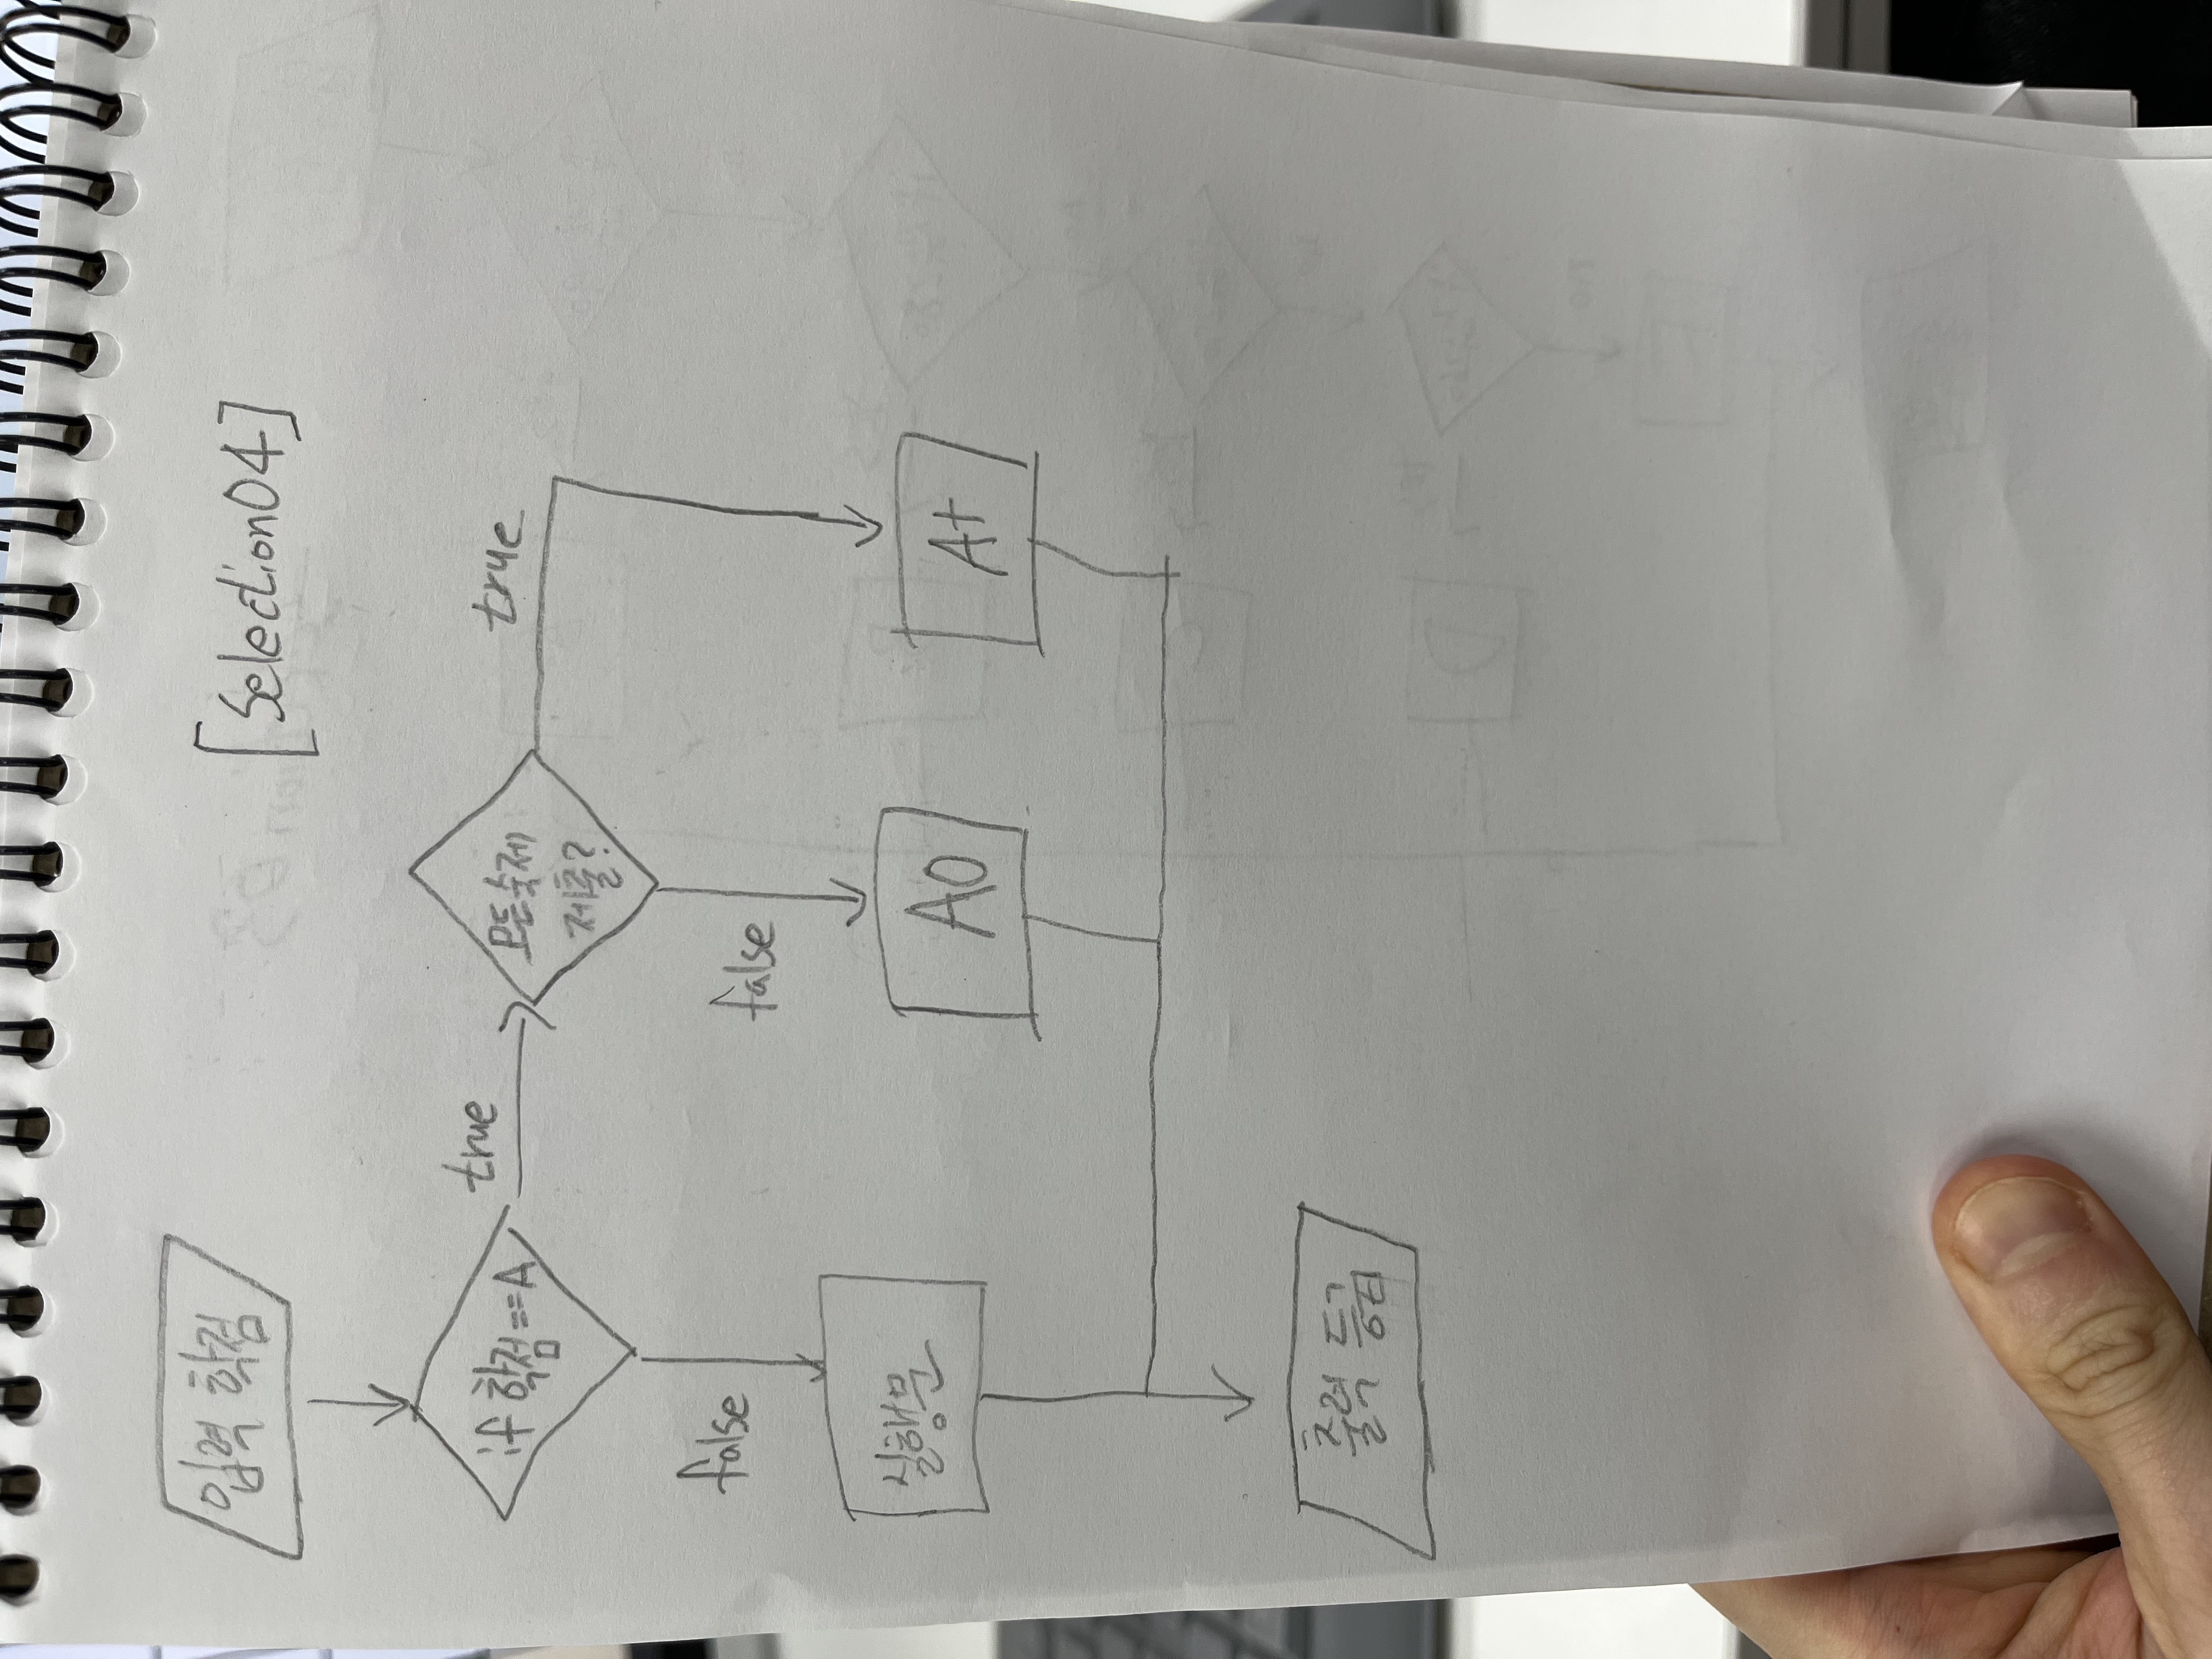 입력 학점
[Selection04]
if 학점==A
true
모든숙제
제출?
true
false
false
실행문
A0
A+
출력 등급